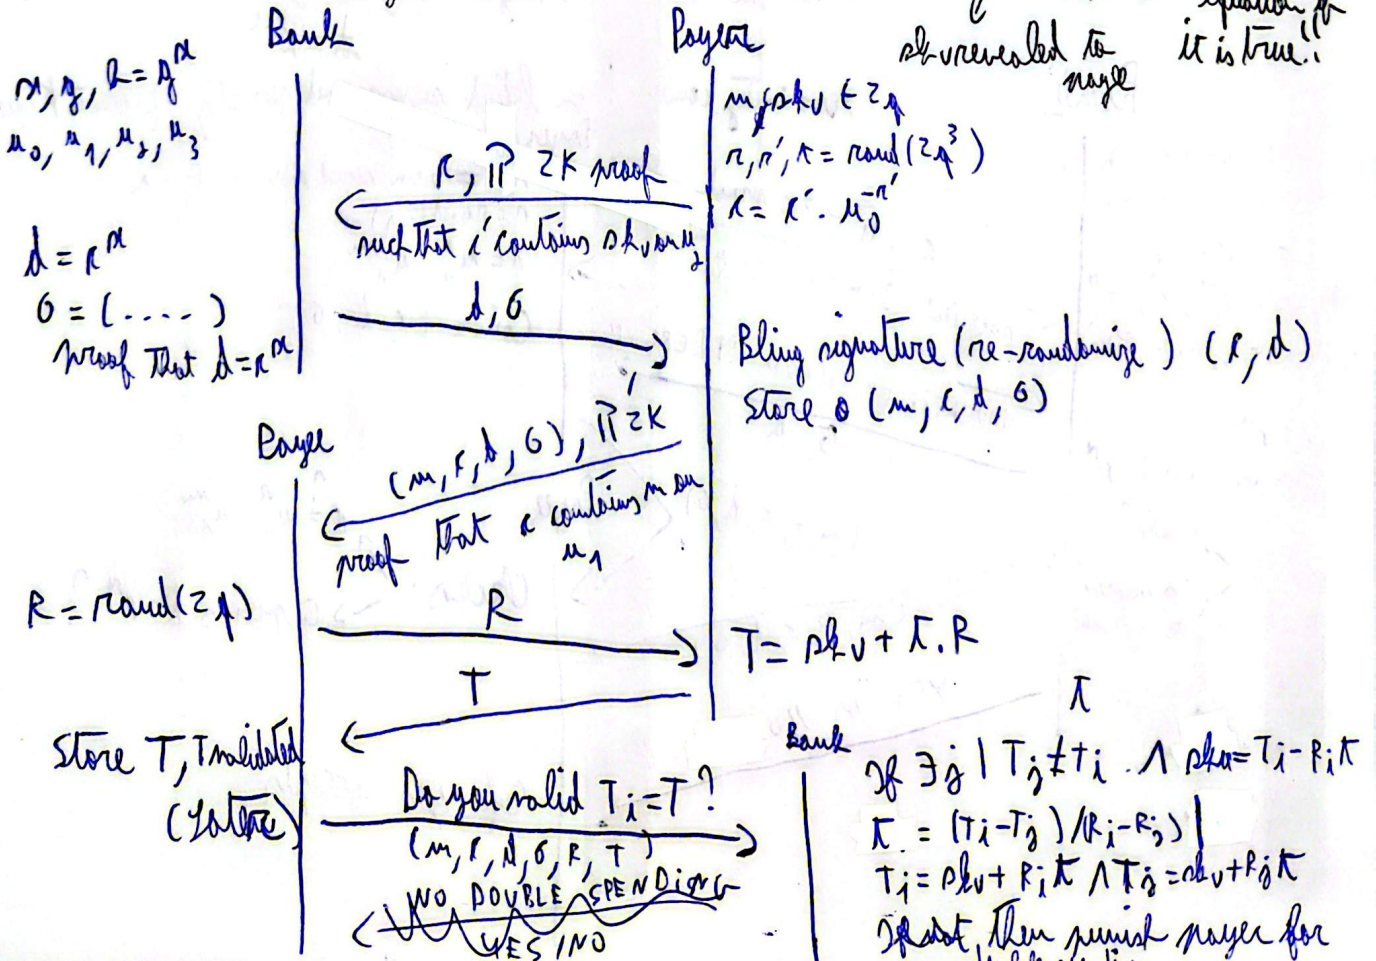 equation if
sku revealed to it is true!!
payee
Bank
Payer
x, g, h = g^x
u_0, u_1, u_2, u_3
m, sku ∈ Zq
r, r', t = rand(Zq^3)
c = c' · u_0^{-r'}
c, π ZK proof
such that c' contains sku on u_2
d = c^x
σ = (....)
proof that d = c^x
d, σ
Bling signature (re-randomize) (c, d)
Store (m, c, d, σ)
Payee
(m, c, d, σ), π' ZK
proof that c contains m on
u_1
R = rand(Zq)
R
T = sku + t.R
T
Store T, T validated
(later)
Do you valid T_i = T ?
(m, c, d, σ, R, T)
NO DOUBLE SPENDING
YES/NO
Bank
t
If ∃ j | T_j ≠ T_i ∧ sku = T_i - R_i t
t = (T_i - T_j) / (R_i - R_j) |
T_i = sku + R_i t ∧ T_j = sku + R_j t
If not, then punish payer for